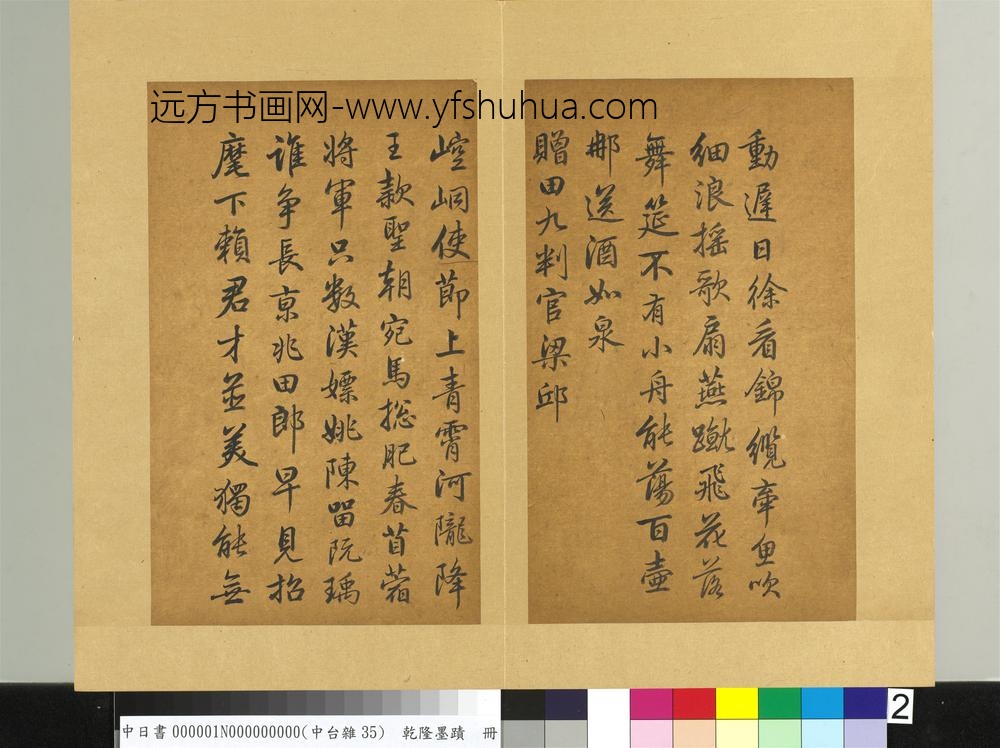 远方书画网-www.yfshuhua.com
動遲日徐看錦纜牽魚吹
細浪搖歌扇燕蹴飛花落
舞筵不有小舟能蕩百壺
那送酒如泉
贈田九判官梁邱
崆峒使節上青霄河隴降
王款聖朝宛馬総肥春苜蓿
將軍只數漢嫖姚陳留阮瑀
誰爭長京兆田郎早見招
麾下賴君才並美獨能無
中日書 000001N000000000(中台雜 35) 乾隆墨蹟 冊
2